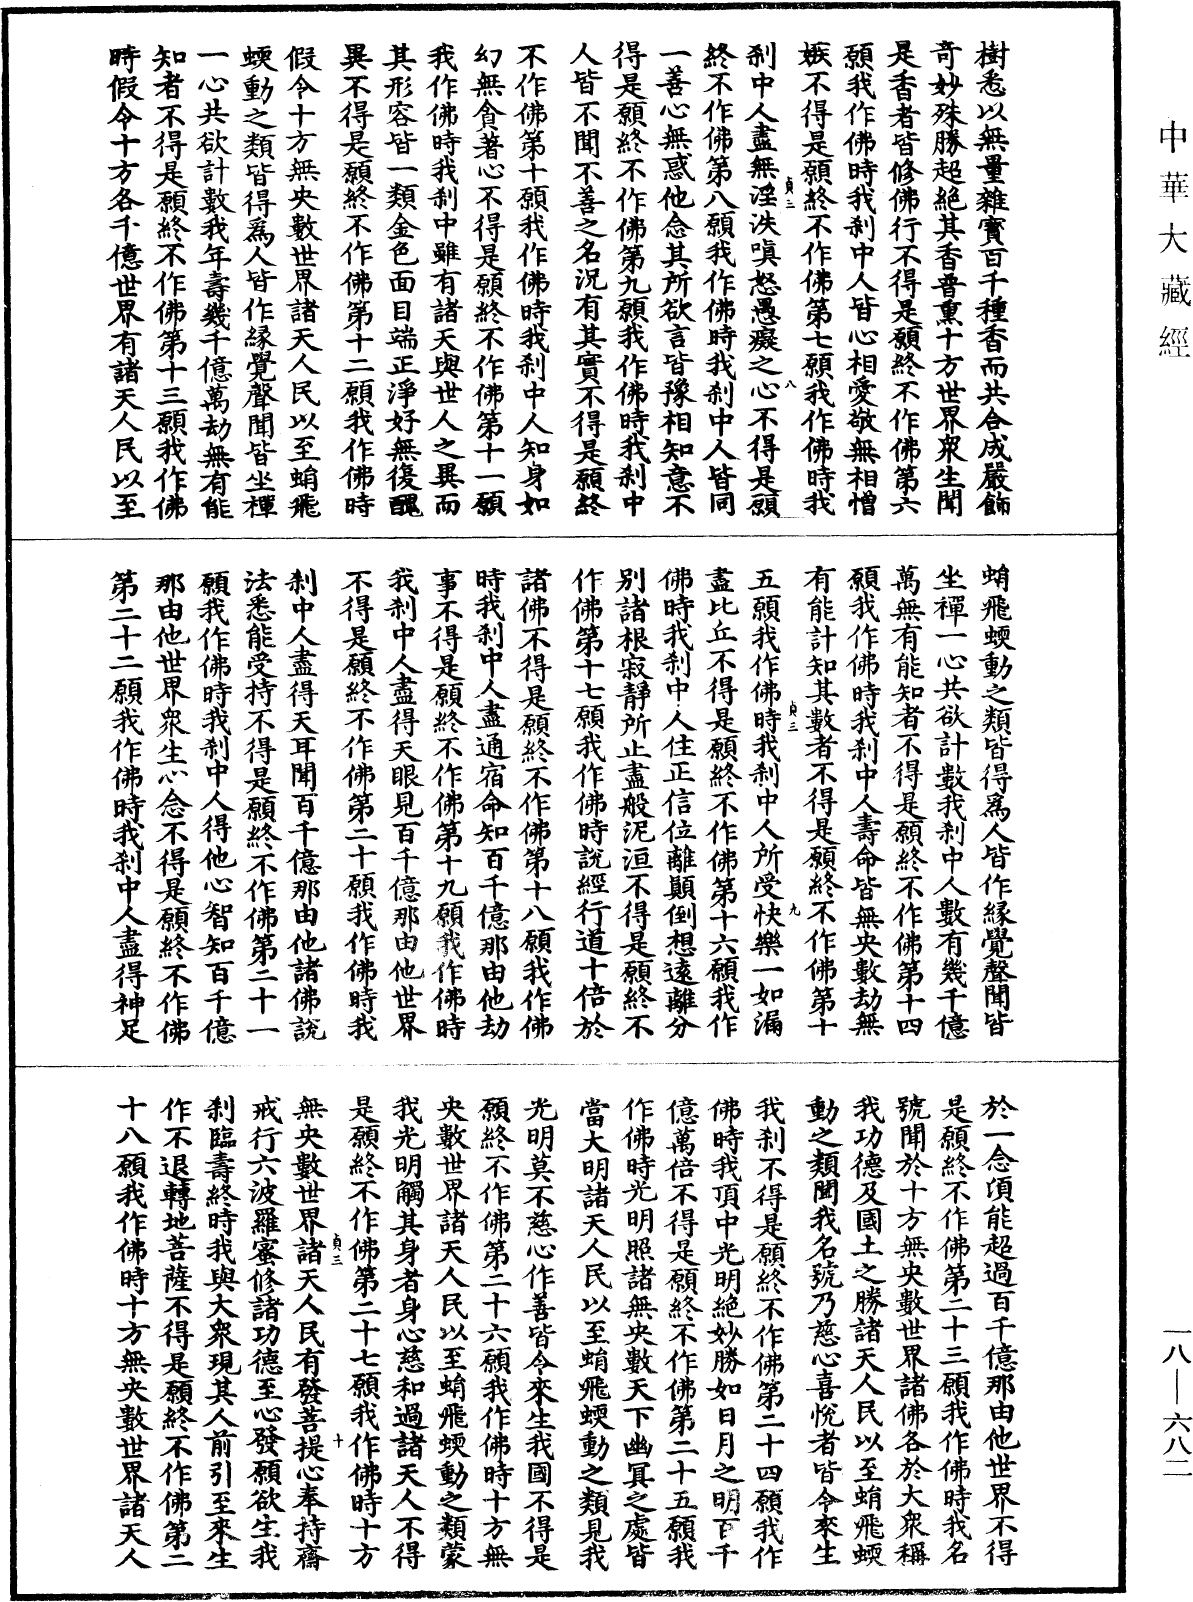 中華大藏經
樹悉以無量雜寶百千種香而共合成嚴飾
奇妙殊勝超絕其香普熏十方世界衆生聞
是香者皆修佛行不得是願終不作佛第六
願我作佛時我刹中人皆心相愛敬無相憎
嫉不得是願終不作佛第七願我作佛時我
刹中人盡無淫泆嗔怒愚癡之心不得是願
終不作佛第八願我作佛時我刹中人皆同
一善心無惑他念其所欲言皆豫相知意不
得是願終不作佛第九願我作佛時我刹中
人皆不聞不善之名況有其實不得是願終
不作佛第十願我作佛時我刹中人知身如
幻無貪著心不得是願終不作佛第十一願
我作佛時我刹中雖有諸天與世人之異而
其形容皆一類金色面目端正淨好無復醜
異不得是願終不作佛第十二願我作佛時
假令十方無央數世界諸天人民以至蜎飛
蝡動之類皆得爲人皆作緣覺聲聞皆坐禪
一心共欲計數我年壽幾千億萬劫無有能
知者不得是願終不作佛第十三願我作佛
時假令十方各千億世界有諸天人民以至
貞三
八
蜎飛蝡動之類皆得爲人皆作緣覺聲聞皆
坐禪一心共欲計數我刹中人數有幾千億
萬無有能知者不得是願終不作佛第十四
願我作佛時我刹中人壽命皆無央數劫無
有能計知其數者不得是願終不作佛第十
五願我作佛時我刹中人所受快樂一如漏
盡比丘不得是願終不作佛第十六願我作
佛時我刹中人住正信位離顛倒想遠離分
別諸根寂靜所止盡般泥洹不得是願終不
作佛第十七願我作佛時說經行道十倍於
諸佛不得是願終不作佛第十八願我作佛
時我刹中人盡通宿命知百千億那由他劫
事不得是願終不作佛第十九願我作佛時
我刹中人盡得天眼見百千億那由他世界
不得是願終不作佛第二十願我作佛時我
刹中人盡得天耳聞百千億那由他諸佛說
法悉能受持不得是願終不作佛第二十一
願我作佛時我刹中人得他心智知百千億
那由他世界衆生心念不得是願終不作佛
第二十二願我作佛時我刹中人盡得神足
貞三
九
於一念頃能超過百千億那由他世界不得
是願終不作佛第二十三願我作佛時我名
號聞於十方無央數世界諸佛各於大衆稱
我功德及國土之勝諸天人民以至蜎飛蝡
動之類聞我名號乃慈心喜悅者皆令來生
我刹不得是願終不作佛第二十四願我作
佛時我頂中光明絕妙勝如日月之明百千
億萬倍不得是願終不作佛第二十五願我
作佛時光明照諸無央數天下幽冥之處皆
當大明諸天人民以至蜎飛蝡動之類見我
光明莫不慈心作善皆令來生我國不得是
願終不作佛第二十六願我作佛時十方無
央數世界諸天人民以至蜎飛蝡動之類蒙
我光明觸其身者身心慈和過諸天人不得
是願終不作佛第二十七願我作佛時十方
無央數世界諸天人民有發菩提心奉持齋
戒行六波羅蜜修諸功德至心發願欲生我
刹臨壽終時我與大衆現其人前引至來生
作不退轉地菩薩不得是願終不作佛第二
十八願我作佛時十方無央數世界諸天人
貞三
十
一八—六八二